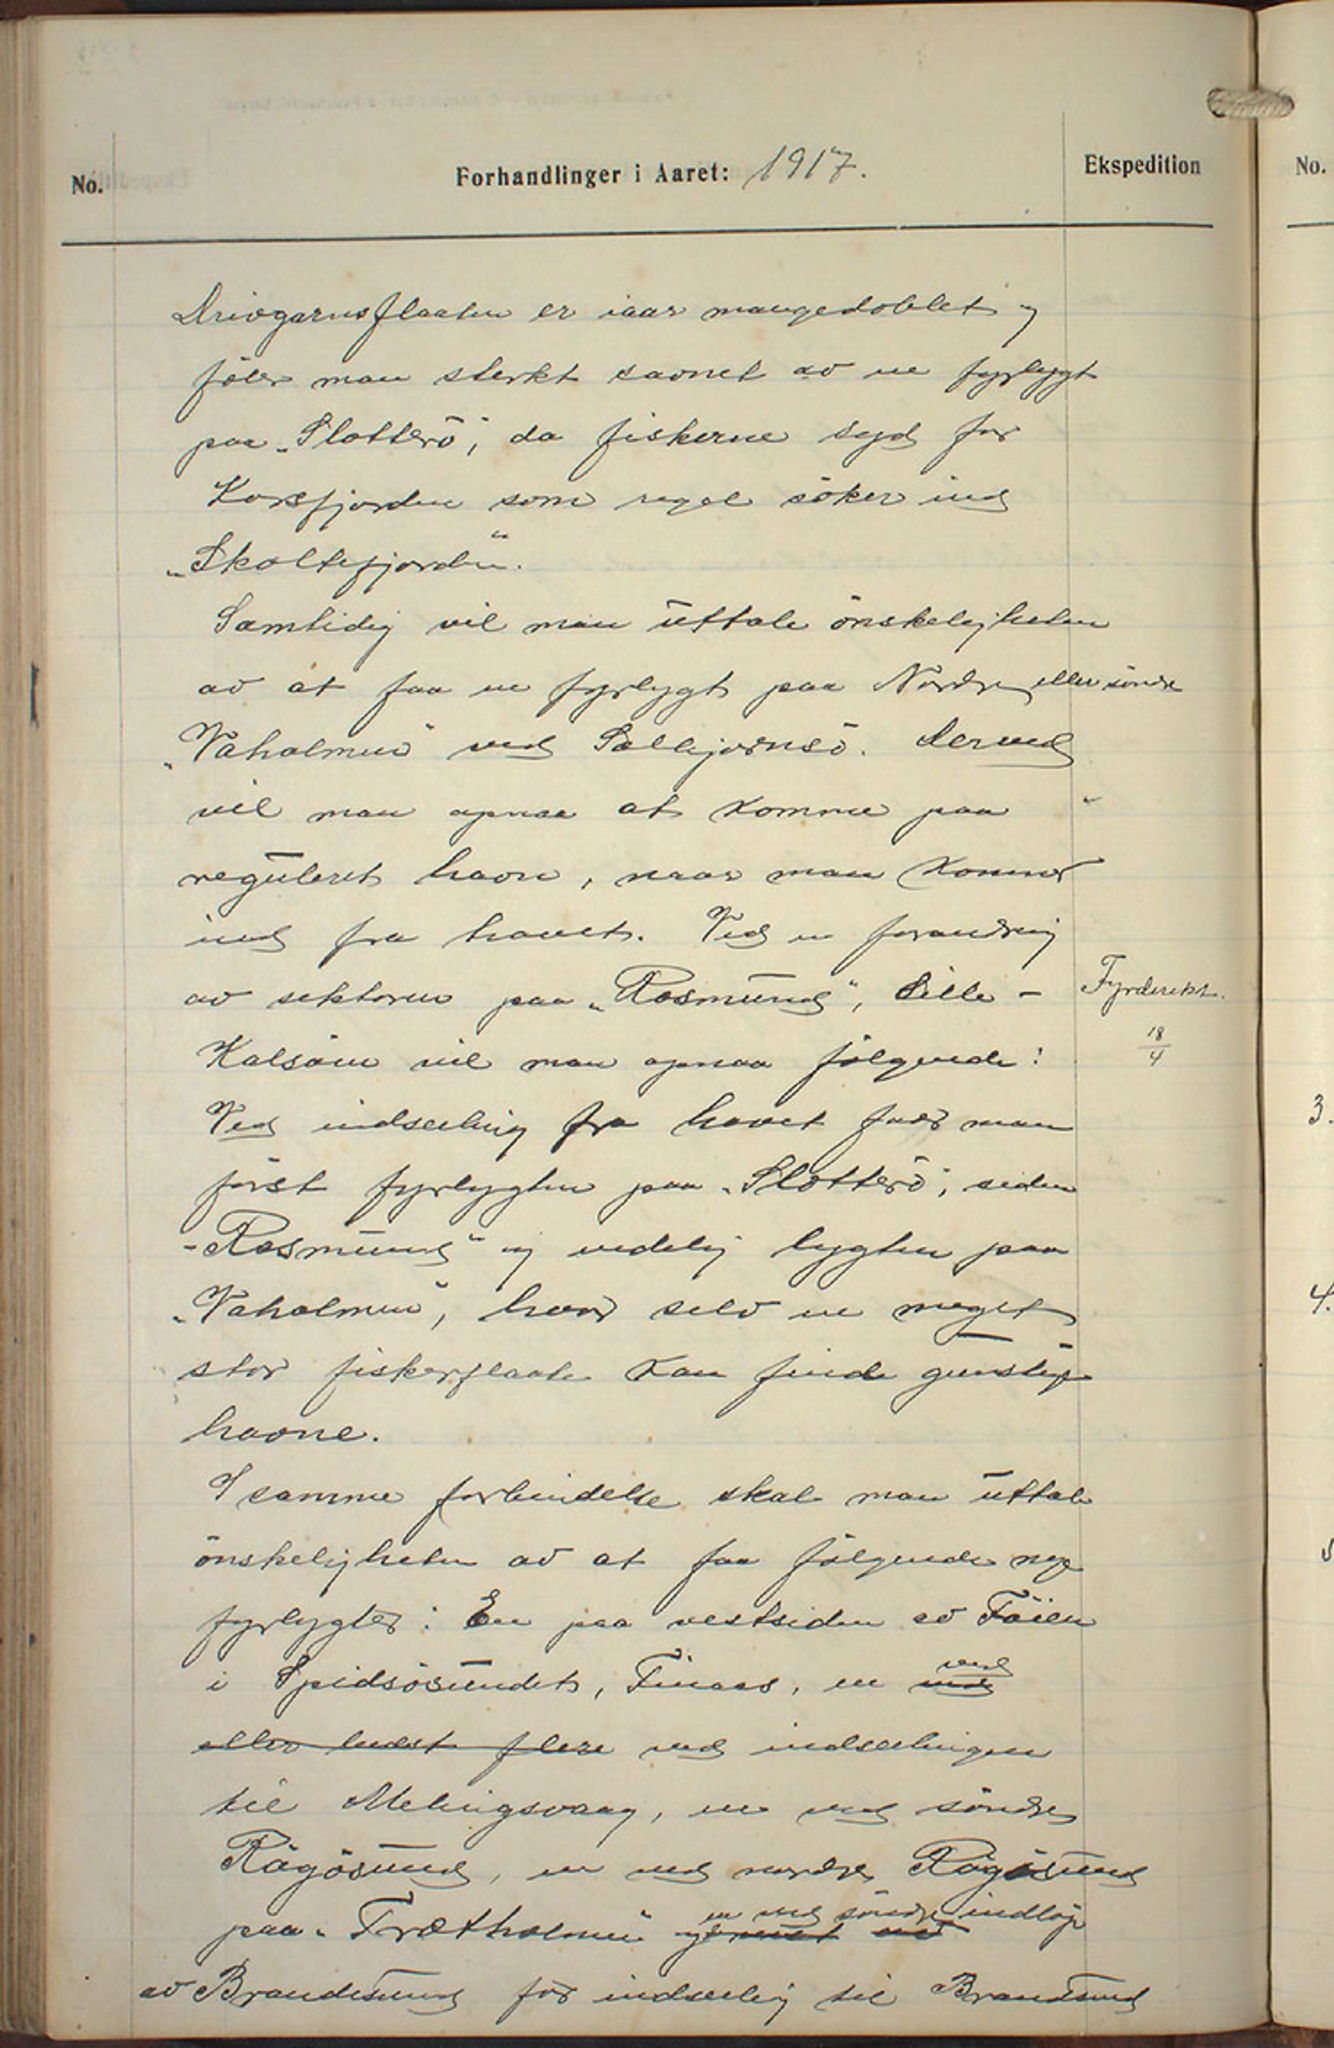 No.
Forhandlinger i Aaret: 1917.
Ekspedition
Drivgarnsflaaten er iaar mangedoblet og
föler man sterkt savnet av en fyrlygt
paa „Slotterö", da fiskerne syd for
Korsfjorden som regel söker ind
„Skoltefjorden".
Samtidig vil man uttale önskeligheten
av at faa en fyrlygt paa Nordre eller söndre
„Vaholmen" ved Selbjørnsö. Derved
vil man opnaa at komme paa
reguleret havn, naar man kommer
ind fra havet. Ved en forandring
av sektoren paa „Rosmund", Lille-
Kalsöen vil man opnaa fölgende:
Fyrdirekt.
18/4
Ved indseiling fra havet faar man
först fyrlygten paa „Slotterö", siden
„Rosmund" og endelig lygten paa
„Vaholmen", hvor selv en meget
stor fiskerflaate kan finde gunstige
havne.
I samme forbindelse skal man uttale
önskeligheten av at faa fölgende nye
fyrlygter: En paa vestsiden av Föien
i Spidsösundet, Finaas, en ved
eller helst flere ved indseilingen
til Melingsvaag, en ved söndre
Rägösund, en ved nordre Rögösund
paa „Trætholmen" en ved söndre indlöp
av Brandesund for indseiling til Brandsund
No.
3.
4.